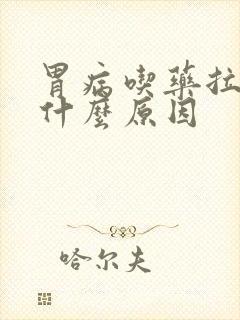 胃病喫藥拉
什麼原因
哈尔夫